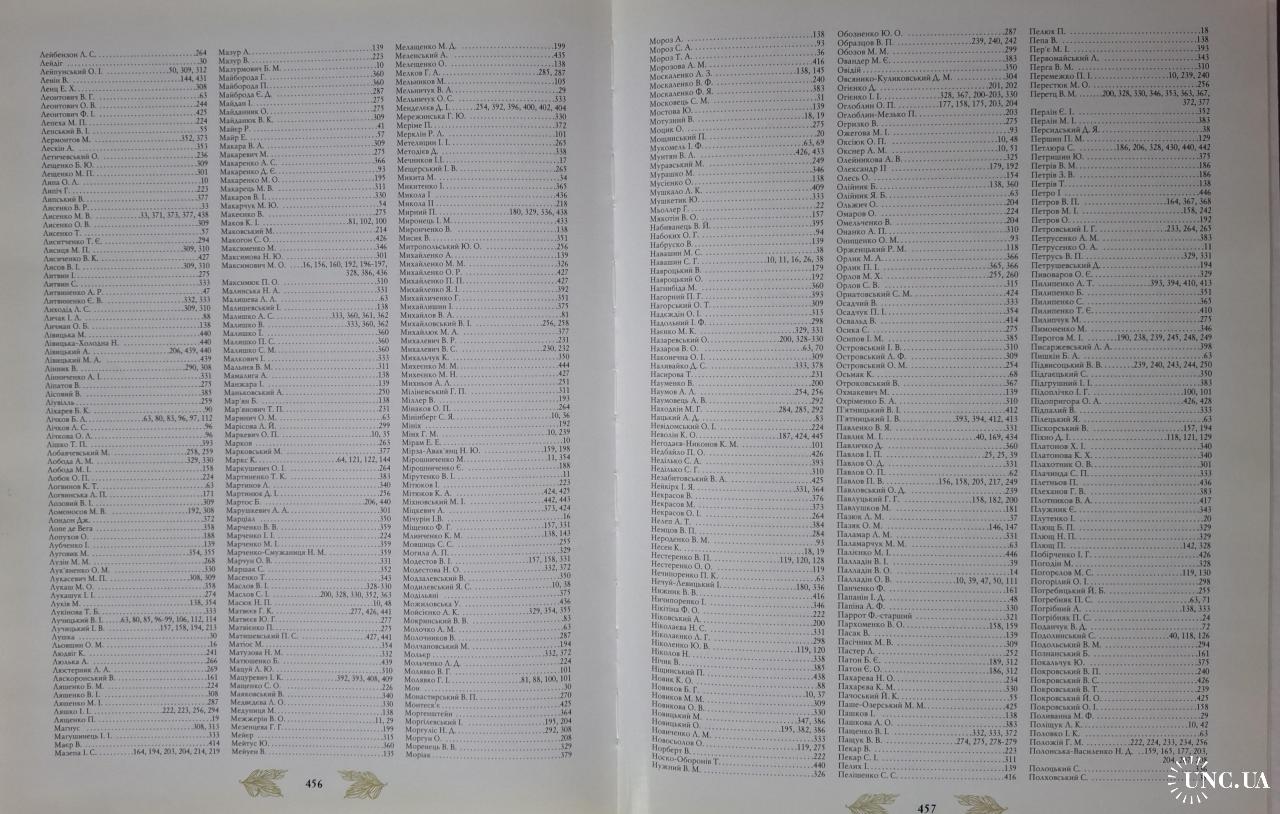 Лейбензон Л. С. 264
Лейдіг 30
Лейпунський О. І. 50, 309, 312
Ленін В. 144, 431
Ленц Е. Х. 308
Леонтович В. Г. 63
Леонтович О. В. 244
Леонтович Ф. І. 425
Лепеха М. П. 224
Лепський В. І. 55
Лермонтов М. 352, 373
Лескін А. 353
Летичевський О. 236
Лещенко Б. Ю. 309
Лещенко М. П. 301
Липа О. Л. 10
Липіч Г. 223
Липський В. 377
Лисенко В. Р. 33
Лисенко М. В. 33, 371, 373, 377, 438
Лисенко О. В. 309
Лисенко Т. 57
Лисятченко Т. Є. 294
Лисиця М. П. 309, 310
Лисиченко В. К. 427
Лисов В. І. 309, 310
Литвин І. 275
Литвин С. 333
Литвиненко А. Р. 47
Литвиненко Є. В. 332, 333
Лиходід Л. С. 309, 310
Личак І. Л. 88
Личман О. Б. 138
Лівицька М. 440
Лівицька-Холодна Н. 440
Лівицький А. 206, 439, 440
Лівицький М. А. 439
Лінник В. 290, 308
Лінниченко А. І. 331
Ліпатов В. 275
Лісовий В. 385
Ліувілль 259
Ліхарев Б. К. 90
Лічков Б. Л. 63, 80, 83, 96, 97, 112
Лічков Л. С. 96
Лічкова О. Л. 96
Лішко Т. П. 393
Лобачевський М. 258, 259
Лобода А. М. 329, 330
Лобода М. І. 158
Лобок О. П. 224
Логвинов К. Т. 63
Логвинська Л. П. 171
Лозовий В. І. 309
Ломоносов М. В. 192, 308
Лондон Дж. 372
Лопе де Вега 358
Лопухов О. 188
Лубченко І. 139
Луговик М. 354, 355
Лузін М. М. 268
Лук'яненко О. М. 330
Лукасевич М. П. 308, 309
Лукаш М. О. 358
Лукашук І. І. 274
Луків М. 138, 354
Лукінова Т. Б. 333
Лучицький В. І. 63, 80, 85, 96-99, 106, 112, 114
Лучицький І. В. 157, 158, 194, 213
Лушка 30
Львовшин О. М. 16
Людвіг К. 241
Люлька А. 266
Люстерник Л. А. 269
Лясковронський В. 161
Ляшенко Б. М. 224
Ляшенко В. І. 308
Ляшенко М. І. 287
Ляшко І. І. 222, 223, 256, 294
Лященко П. 19
Магнус 308, 313
Магушинець І. І. 333
Маєр В. 414
Мазепа І. С. 164, 194, 203, 204, 214, 219
Мазур А. 139
Мазур В. 223
Мазурмович Б. М. 10
Майборода Г. 360
Майборода П. 360
Майборода Є. Д. 287
Майдан І. 275
Майданник О. 275
Майданюк В. К. 309
Майєр Р. 41
Майр Е. 57
Макара В. А. 309
Макаревич М. 275
Макаренко А. С. 366
Макаренко Д. Є. 93
Макаренко М. О. 195
Макарець М. В. 311
Макаров В. І. 330
Макарчук М. Ю. 54
Макєєнко В. 275
Маков К. І. 81, 102, 100
Маковський М. 214
Макогон С. О. 426
Максименко М. 346
Максимова Н. Ю. 301
Максимович М. О. 16, 156, 160, 192, 196-197,
328, 386, 436
Максимюк П. О. 310
Малинська Н. А. 331
Малишева Л. Л. 63
Малишевський І. 138
Малишко А. С. 333, 360, 361, 362
Малишко В. 333, 360, 362
Малишко І. 360
Малишко П. С. 360
Малишко С. М. 360
Малкович І. 333
Мальнєв В. М. 311
Мамалига І. 138
Манжара І. 139
Маньковський А. 250
Мар'ян Б. 138
Мар'янович Т. П. 231
Маринич О. М. 63
Марісова Л. Й. 299
Маркевич О. П. 10, 35
Марков 263
Марковський М. 377
Маркс К. 64, 121, 122, 144
Маркушевич О. І. 264
Мартиненко Т. К. 383
Мартинов А. 340
Мартинюк Д. І. 256
Мартос Б. 206, 440
Марушкевич А. А. 301
Марціал 350
Марченко В. В. 359
Марченко І. І. 224
Марченко М. І. 359
Марченко-Смужаниця Н. М. 359
Марчун О. В. 331
Маршак С. 352
Масенко Т. 343
Маслов В. І. 328-330
Маслов С. І. 200, 328, 330, 352, 363
Масюк Н. П. 10, 48
Матвєєв Г. К. 277, 426, 441
Матвєєв Ю. Г. 277
Матвієнко П. 275
Матишевський П. С. 427, 441
Матіос М. 354
Матузова Н. М. 332
Матюшенко Б. 439
Мацуй Л. Ю. 310
Мацуревич І. К. 392, 393, 408, 409
Маценко С. О. 226
Маяковський В. 340
Медведєв Л. О. 330
Медуниця М. 138
Межжерін В. О. 11, 29
Мезенцева Г. Г. 199
Мейєр 315
Мейтус Ю. 360
Мейуев В. 135
Мелащенко М. Д. 199
Меленський А. 435
Мелещенко О. 138
Мелков Г. А. 285, 287
Мельников М. 105
Мельничук В. А. 29
Мельничук О. С. 333
Менделєєв Д. І. 254, 392, 396, 400, 402, 404
Мережинська Г. Ю. 330
Меріме П. 372
Мерклін Р. Л. 101
Метелицин І. І. 265
Методієв Д. 338
Мечников І.І. 17
Мещерський І. В. 263
Микита М. 34
Микитенко І. 365
Микола І 436
Микола ІІ 218
Мирний П. 180, 329, 336, 438
Миронець І. М. 433
Миронченко В. 138
Мисик В. 351
Митропольський Ю. О. 256
Михайленко А. 139
Михайленко М. М. 326
Михайленко О. Р. 427
Михайленко П. П. 427
Михайленко Я. І. 392
Михайличенко Г. 351
Михайлишин І. 375
Михайлов В. А. 81
Михайловський В. І. 256, 258
Михайлюк М. А. 377
Михалевич В. Р. 231
Михалевич В. С. 230, 232
Михальчук К. 350
Михеєнко М. М. 444
Михєєнко М. Н. 427
Михньов А. Л. 251
Міліневський Г. П. 311
Міллер В. 193
Мінаков О. П. 264
Мінінберг С. Я. 10, 36
Мініх 192
Мінх Г. М. 10, 239
Мірам Е. Е. 10
Мірза-Авак'янц Н. Ю. 159, 198
Мірошниченко М. 11, 354
Мірошниченко Є. 188
Мірутенко В. І. 11
Мітюков І. 223
Мітюков К. А. 424, 425
Міхновський М. І. 442, 443
Міцкевич А. 373, 424
Мічурін І.В. 16
Міщенко Ф. Г. 157, 331
Млинченко К. М. 138, 143
Мовшищ С. С. 255
Могила А. П. 329
Модестов В. І. 157, 158, 331
Модестова Н. О. 332, 372
Модзалевський В. 350
Модилевський Я. С. 10, 38
Модільяні 375
Можиловська У. 436
Мойсієнко А. К. 329, 354, 355
Мокринський В. В. 83
Молочко А. М. 63
Молочников В. 287
Молчановський М. 194
Мольєр 332, 372
Мольченко Л. Д. 224
Молявко В. Г. 101
Молявко Г. І. 81, 88, 100, 101
Мон 30
Монастирський В. П. 270
Монтеск'є 425
Моргенштейн 364
Моргілевський І. 195, 204
Моргуліс Н. Д. 292, 308
Моргун О. 208
Моренець В. В. 329
Моріак 379
456
Мороз А. 138
Мороз С. А. 93
Мороз Т. А. 36
Морозова А. М. 416
Москаленко А. З. 138, 145
Москаленко В. Ф. 240
Москаленко Ф. Я. 383
Московець С. М. 31
Мостова Ю. 139
Мотузний В. 18, 19
Моцик О. 275
Мощинський П. 20
Мукомель І. Ф. 63, 69
Мунтян В. Л. 426, 433
Муравський М. 249
Мурашко М. 346
Мусієнко О. 138
Мушкало Л. К. 409
Мушкетик Ю. 333
Мьоллер Г. 22
Мякотін В. О. 157
Набиванець В. Й. 395
Набоких О. Г. 94
Набруско В. 139
Навашин М. С. 38
Навашин С. Г. 10, 11, 16, 26, 38
Навроцький В. 179
Навроцький О. 192
Нагнибіда М. 360
Нагорний П. Г. 393
Нагорський О. Т. 309
Надєждін О. І. 313
Надольний І. Ф. 298
Наєнко М. К. 329, 331
Назаревський О. 200, 328-330
Назаров В. О. 63, 70
Наконечна О. І. 309
Наливайко Д. С. 333, 378
Насирова Т. 231
Науменко В. 200
Наумов А. Л. 254, 256
Наумовець А. В. 292
Находкін М. Г. 284, 285, 292
Нацький А. Д. 83
Невідомський О. І. 224
Неволін К. О. 187, 424, 445
Негодаєв-Никонов К. М. 101
Недбайло П. О. 426
Неділько С. А. 393
Неділько С. Г. 310
Незабитовський В. А. 425
Нейкірх І. Я. 331, 364
Некрасов В. 376
Некрасов М. 373
Некрасов О. І. 264
Нелеп А. Т. 384
Немцов В. П. 284
Нероденко В. М. 93
Несен К. 18, 19
Нестеренко В. П. 119, 120, 128
Нестеренко О. О. 119
Нечипоренко П. К. 63
Нечуй-Левицький І. 180, 336
Нижник В. В. 311
Ничипоренко І. 416
Нікітіна Ф. О. 346
Ніковський А. 222
Ніколаєва Н. С. 200
Ніколаєнко Л. Г. 331
Ніколенко Ю. В. 298
Ніколов Н. 119, 120
Нічик В. 338
Ніщинський П. 385
Новик К. О. 438
Новиков Б. Г. 88
Новиков М. М. 10, 37
Новикова О. В. 309
Новицький М. 330
Новицький О. 347, 386
Новиченко Л. М. 195, 382, 386
Новосьолов О. 333
Норберт В. 119, 275
Носко-Оборонів Т. 222
Нужний В. М. 440
326
Обозненко Ю. О. 287
Образцов В. П. 239, 240, 242
Обозов М. М. 299
Овандер М. Є. 383
Овідій 350
Овсянико-Куликовський Д. М. 304
Огієнко Д. 201, 202
Огієнко І. І. 328, 367, 200-203, 330
Оглоблин О. П. 177, 158, 175, 203, 204
Оглоблін-Мезько П. 203
Огризко В. 275
Ожегова М. І. 93
Оксіюк О. П. 10, 48
Окснер А. М. 10, 51
Олейникова А. В. 325
Олександр ІІ 179, 192
Олесь О. 154
Олійник Б. 138, 360
Олійник Я. Б. 63
Ольжич О. 204
Омаров О. 224
Омельченко В. 204
Онанко А. П. 310
Онищенко О. М. 93
Орженцький Р. М. 118
Орлик М. А. 366
Орлик П. І. 365, 366
Орлов М. Х. 255, 260
Орлов С. В. 315
Орнатовський С. М. 424
Осадчий В. 333
Осадчук П. І. 354
Освальд В. 414
Осика С. 275
Осипов І. М. 385
Островський І. В. 310
Островський Л. Ф. 309
Островський О. М. 254
Осьмак К. 68
Отроковський В. 367
Охмакевич М. 139
Охріменко Б. А. 310
П'ятницький В. І. 412
П'ятницький І. В. 393, 394, 412, 413
Павленко В. Я. 331
Павлик М. І. 40, 169, 434
Павличко Д. 360
Павлов І. П. 25, 25, 39
Павлов О. Д. 331
Павлов О. П. 62
Павлов П. В. 156, 158, 205, 217, 249
Павловський О. Д. 239
Павлуцький Г. Г. 158, 182, 200
Павлушков М. 181
Пазюк Л. М. 37
Пазяк О. М. 146, 147
Паламар Л. М. 331
Паламарчук М. М. 63
Палієнко М. І. 446
Палладін В. І. 39
Палладін В. О. 14
Палладін О. В. 10, 39, 47, 50, 111
Панченко Ф. 161
Папанін І. Д. 48
Папіна А. Ф. 330
Паррот Ф.-старший 321
Пархоменко В. О. 158, 159
Пасак В. 139
Пасічник М. В. 309
Пастер Л. 252
Патон Б. Є. 189, 312
Патон Є. О. 186, 312
Пахарева Н. О. 234
Пахарева К. М. 330
Пачоський Й. К. 55
Паше-Озерський М. М. 425
Пашков І. 138
Пашкова А. О. 383
Пащенко В. І. 332, 333, 372
Пащук В. В. 274, 275, 278-279
Пекар В. 223
Пекар С. І. 311
Пелих І. 139
Пеліщенко С. С. 416
Пелюх П. 18
Пепа В. 138
Пер'є М. І. 393
Первомайський Л. 343
Перга В. М. 310
Перемежко П. І. 10, 239, 240
Перестюк М. О. 256
Перетц В. М. 200, 328, 330, 346, 353, 363, 367,
372, 377
Перлін Є. І. 352
Перлін М. І. 383
Персидський Д. Я. 38
Першин П. М. 129
Петлюра С. 186, 206, 328, 430, 440, 442
Петришин Ю. 375
Петрів В. М. 186
Петрів З. В. 186
Петрів Т. 138
Петро І 446
Петров В. П. 164, 367, 368
Петров М. І. 158, 242
Петров О. 192
Петровський І. Г. 233, 264, 265
Петрусенко А. М. 383
Петрусенко О. А. 11
Петрусь В. П. 329, 331
Петрушевський Д. 194
Пивоваров О. Є. 329
Пилипенко А. Т. 393, 394, 410, 413
Пилипенко Б. 351
Пилипенко С. 365
Пилипенко Т. Є. 410
Пилипчук М. 275
Пимоненко М. 346
Пирогов М. І. 190, 238, 239, 245, 248, 249
Писаржевський Л. А. 398
Пишкін Б. А. 63
Підвисоцький В. В. 239, 240, 243, 244, 250
Підгаєцький С. 350
Підгрушний І. І. 383
Підоплічко І. Г. 100, 101
Підопригора О. А. 426, 428
Підпалий В. 333
Пілецький Я. 63
Піскорський В. 157, 194
Піхно Д. І. 118, 121, 129
Платонов Х. І. 340
Платонова К. Х. 340
Плахотник О. В. 301
Плачинда С. П. 333
Плетньов П. 436
Плеханов Г. В. 383
Плотников В. А. 417
Плужник Є. 343
Плутенко І. 20
Плющ Б. П. 329
Плющ Н. П. 329
Плющ П. 142, 328
Побірченко І. Г. 426
Погодін М. 328
Погорелов М. С. 119, 130
Погорілий О. І. 298
Погребицький Й. Б. 255
Погребняк П. С. 63, 71
Погрібний А. 138, 333
Погрібняк П. С. 24
Поданчук В. Д. 72
Подолинський С. 40, 118, 126
Подольський В. М. 294
Познанський Б. 161
Покальчук Ю. 375
Покровський В. П. 240
Покровський В. С. 426
Покровський В. Т. 239
Покровський Й. О. 425
Покровський О. І. 158
Поливанна М. Ф. 29
Поліщук Л. К. 10, 42
Половко І. К. 63
Положій Г. М. 222, 224, 233, 234, 256
Полонська-Василенко Н. Д. 159, 165, 177, 203,
Полоцький С.
Полховський С.
457
UNC.UA